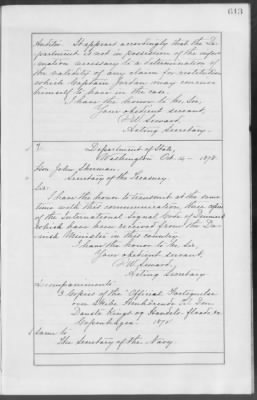 613
Auditor. It appears accordingly that the De-
partment is not in possession of the infor-
mation necessary to a determination of
the validity of any claim for restitution
which Captain Jordan may conceive
himself to have in the case.
I have the honor to be, Sir,
Your obedient servant,
F. W. Seward,
Acting Secretary.
Department of State,
Washington Oct. 4 - 1878.
Hon. John Sherman
Secretary of the Treasury.
Sir:
I have the honor to transmit at the same
time with this communication three copies
of the International Signal Code of Denmark
which have been received from the Da-
nish Minister in this country.
I have the honor to be, Sir,
Your obedient servant,
F. W. Seward,
Acting Secretary
Accompaniments:
3 Copies of the "Official Fortegnelse
over Skibe Henhörende til Den
Danske Krigs og Handels-flaade
Copenhagen 187
Same to
The Secretary of the Navy.